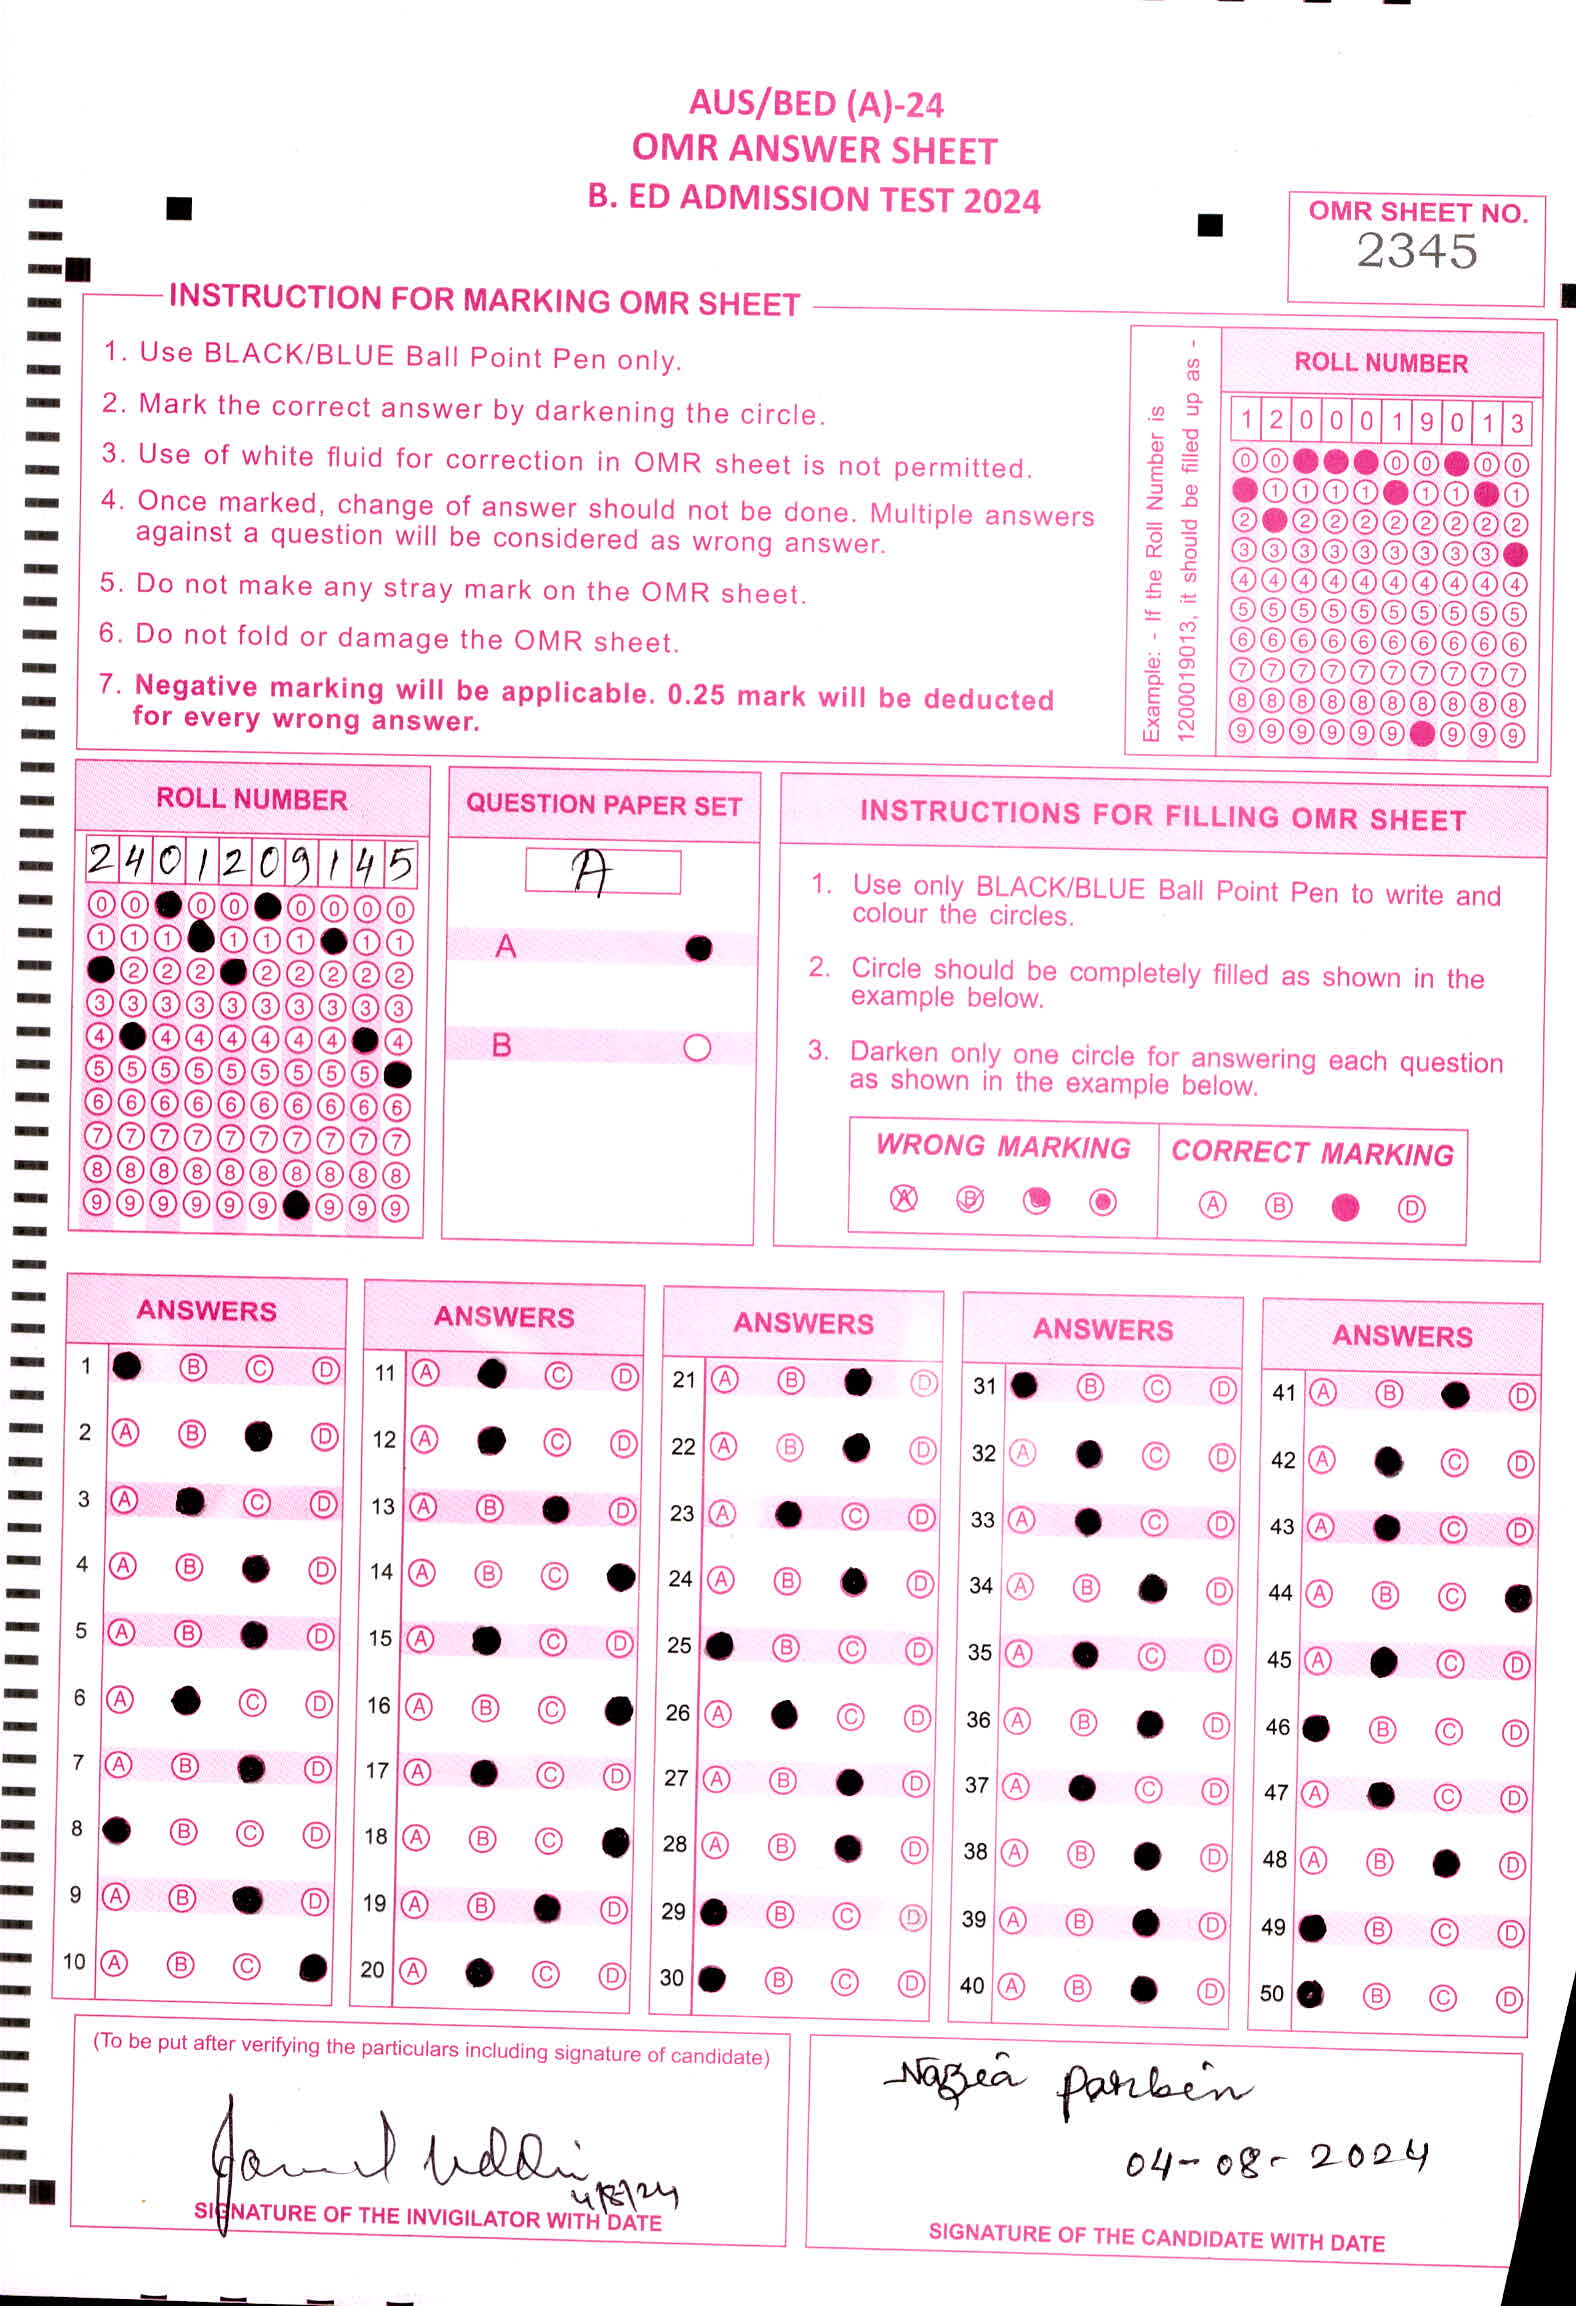 AUS/BED (A)-24
OMR ANSWER SHEET
B. ED ADMISSION TEST 2024
OMR SHEET NO.
2345
INSTRUCTION FOR MARKING OMR SHEET
1. Use BLACK/BLUE Ball Point Pen only.
2. Mark the correct answer by darkening the circle.
3. Use of white fluid for correction in OMR sheet is not permitted.
4. Once marked, change of answer should not be done. Multiple answers
against a question will be considered as wrong answer.
5. Do not make any stray mark on the OMR sheet.
6. Do not fold or damage the OMR sheet.
7. Negative marking will be applicable. 0.25 mark will be deducted
for every wrong answer.
Example: - If the Roll Number is
1200019013, it should be filled up as -
ROLL NUMBER
1 2 0 0 0 1 9 0 1 3
0 0 0 0 0 0
1 1 1 1 1 1 1
2 2 2 2 2 2 2 2 2
3 3 3 3 3 3 3 3 3
4 4 4 4 4 4 4 4 4 4
5 5 5 5 5 5 5 5 5 5
6 6 6 6 6 6 6 6 6 6
7 7 7 7 7 7 7 7 7 7
8 8 8 8 8 8 8 8 8 8
9 9 9 9 9 9 9 9 9
ROLL NUMBER
2 4 0 1 2 0 9 1 4 5
0 0 0 0 0 0 0 0
1 1 1 1 1 1 1 1
2 2 2 2 2 2 2 2
3 3 3 3 3 3 3 3 3 3
4 4 4 4 4 4 4 4
5 5 5 5 5 5 5 5 5
6 6 6 6 6 6 6 6 6 6
7 7 7 7 7 7 7 7 7 7
8 8 8 8 8 8 8 8 8 8
9 9 9 9 9 9 9 9 9
QUESTION PAPER SET
A
A
B
INSTRUCTIONS FOR FILLING OMR SHEET
1. Use only BLACK/BLUE Ball Point Pen to write and
colour the circles.
2. Circle should be completely filled as shown in the
example below.
3. Darken only one circle for answering each question
as shown in the example below.
WRONG MARKING
A B
CORRECT MARKING
A B D
ANSWERS
1 B C D
2 A B D
3 A C D
4 A B D
5 A B D
6 A C D
7 A B D
8 B C D
9 A B D
10 A B C
ANSWERS
11 A C D
12 A C D
13 A B D
14 A B C
15 A C D
16 A B C
17 A C D
18 A B C
19 A B D
20 A C D
ANSWERS
21 A B D
22 A B D
23 A C D
24 A B D
25 B C D
26 A C D
27 A B D
28 A B D
29 B C D
30 B C D
ANSWERS
31 B C D
32 A C D
33 A C D
34 A B D
35 A C D
36 A B D
37 A C D
38 A B D
39 A B D
40 A B D
ANSWERS
41 A B D
42 A C D
43 A C D
44 A B C
45 A C D
46 B C D
47 A C D
48 A B D
49 B C D
50 B C D
(To be put after verifying the particulars including signature of candidate)
Jamil Uddin
4/8/24
SIGNATURE OF THE INVIGILATOR WITH DATE
Nazia Parbin
04-08-2024
SIGNATURE OF THE CANDIDATE WITH DATE